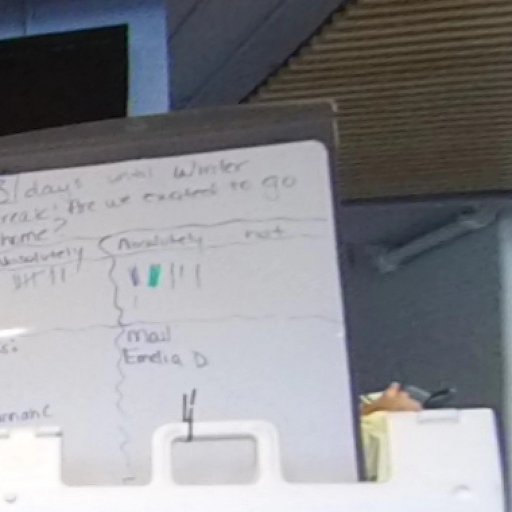 31 days until Winter
reak! Are we excited to go
home?
Absolutely Absolutely not
Mail
Emelia D